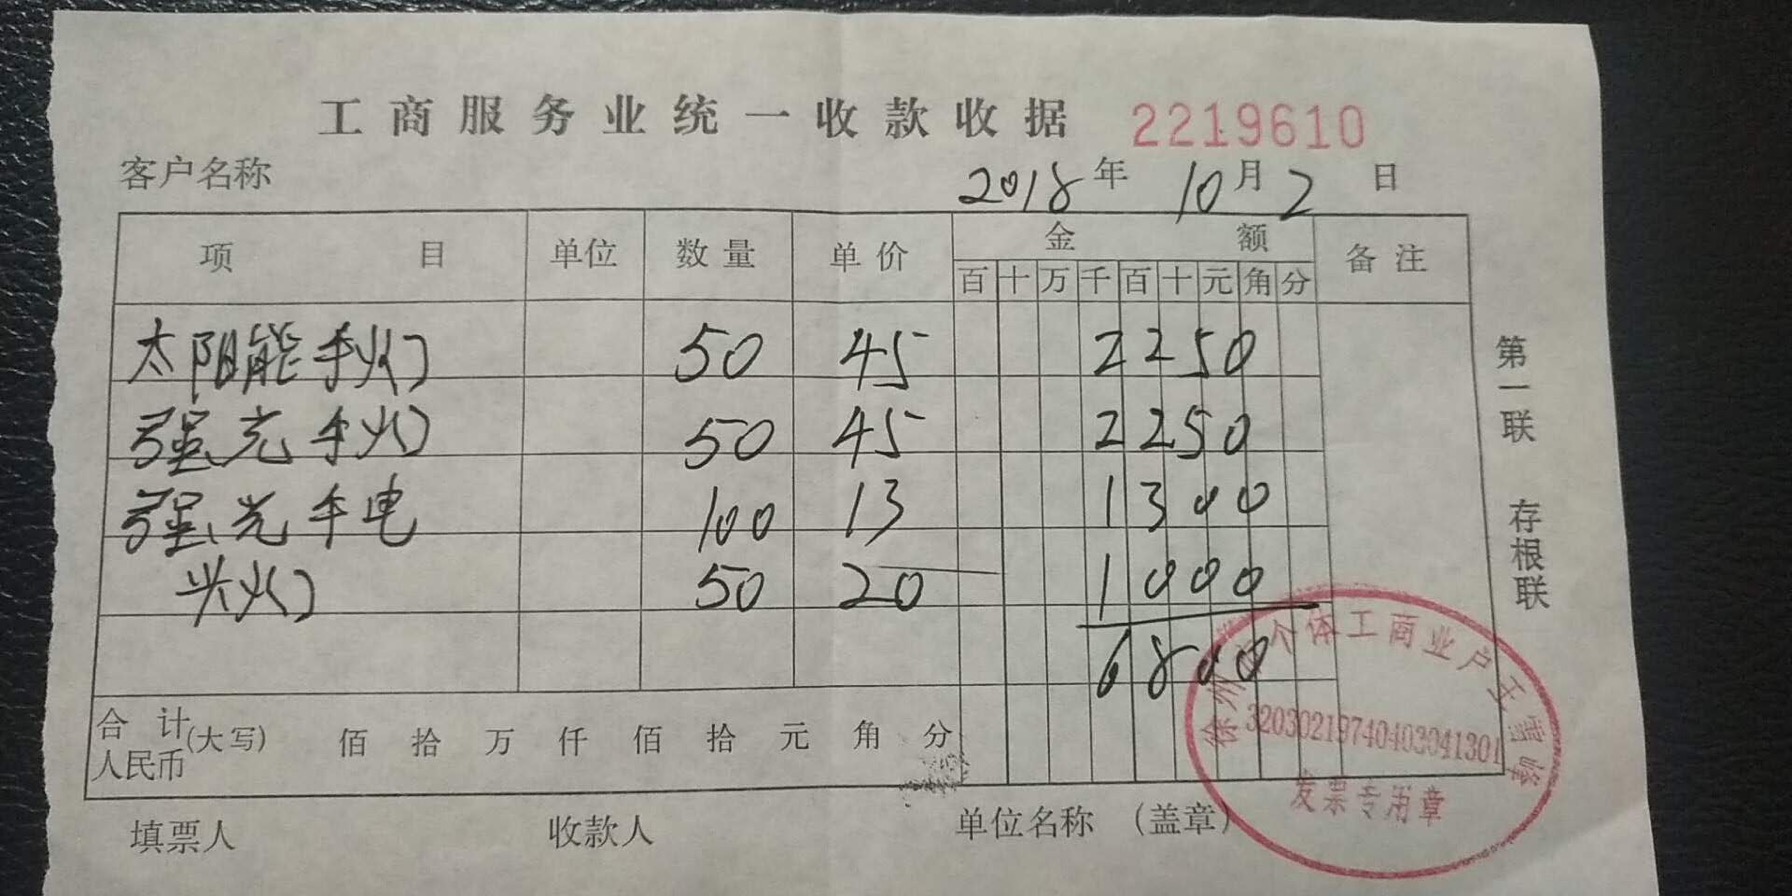 工商服务业统一收款收据 2219610
客户名称 2018年 10月 2日
项目 单位 数量 单价 金额 备注
百 十 万 千 百 十 元 角 分
太阳能手灯 50 45 2250
强光手灯 50 45 2250
强光手电 100 13 1300
头灯 50 20 1000
6800
合计
人民币 (大写) 佰 拾 万 仟 佰 拾 元 角 分
填票人 收款人 单位名称 (盖章)
第一联 存根联
徐州 个体工商业户王雪峰
32030219740403041301
发票专用章